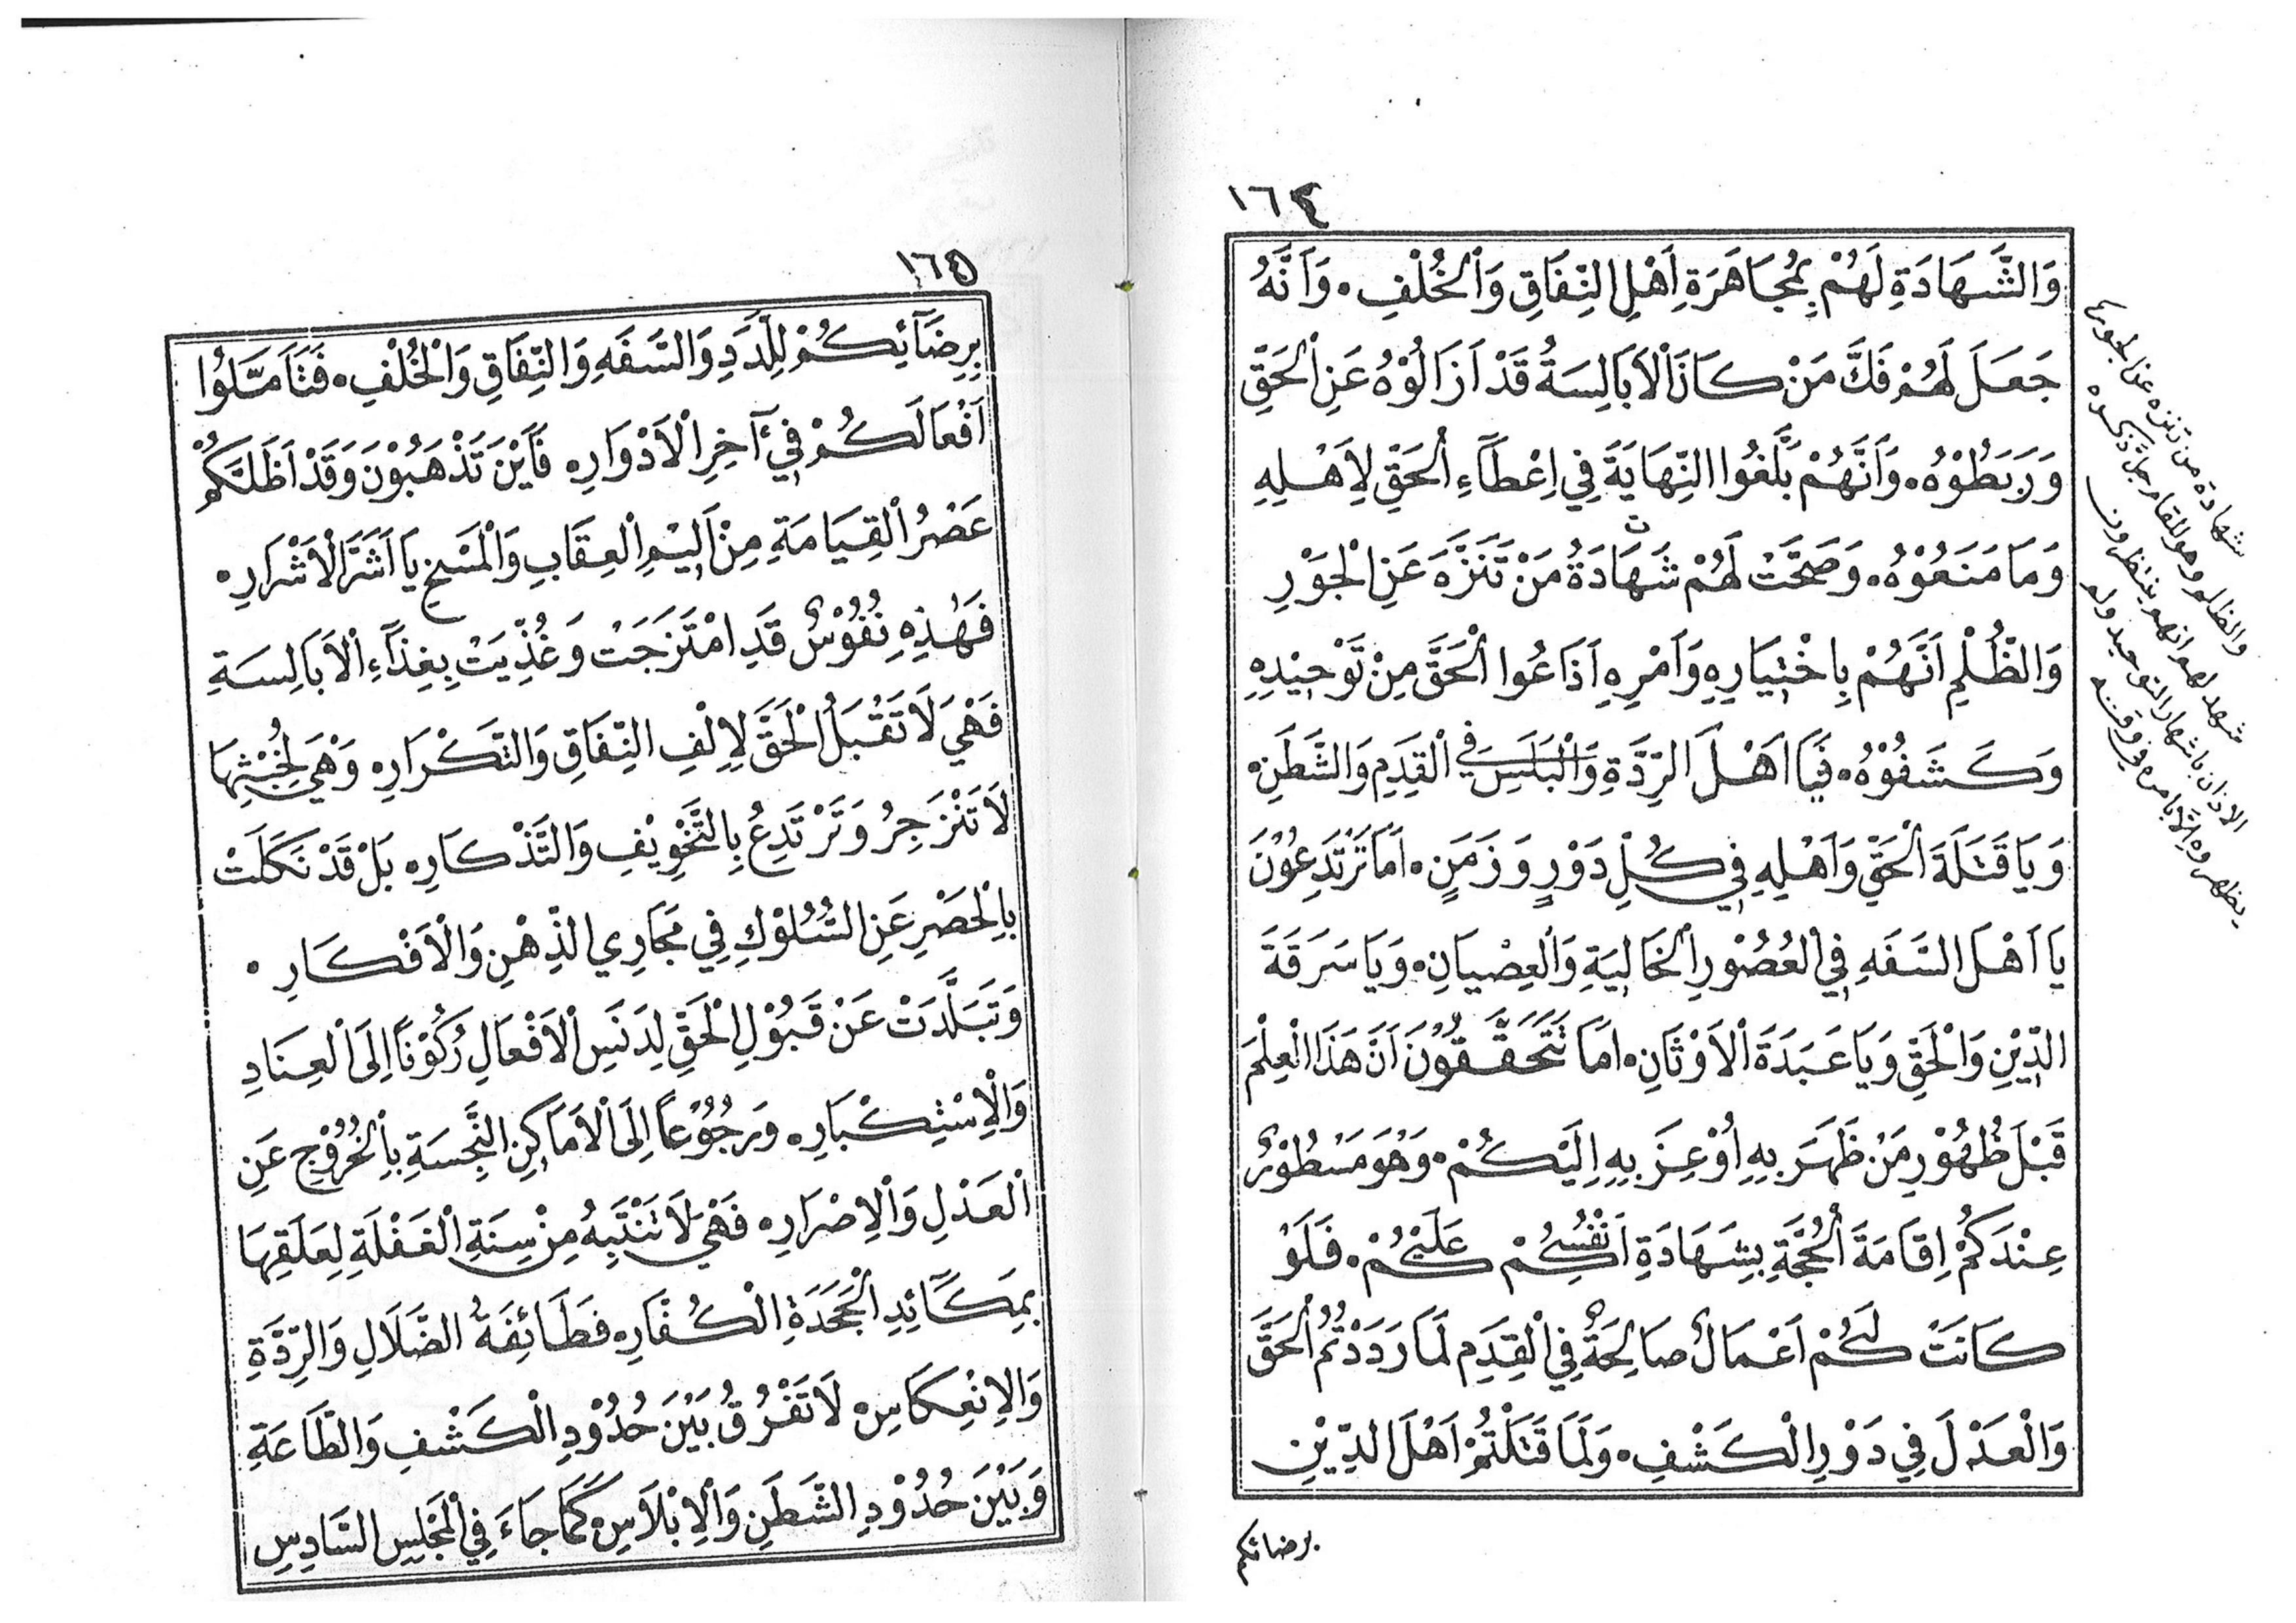 ١٦٤
وَالشَّهَادَةِ لَهُمْ بِمُجَاهَرَةِ اَهْلِ النِّفَاقِ وَالْخُلْفِ. وَاَنَّهُ
جَعَلَ لَهُمْ فَكَّ مَنْ كَانَ الْاَبَالِسَةُ قَدْ اَزَالُوْهُ عَنِ الْحَقِّ
وَرَبَطُوْهُ. وَاَنَّهُمْ بَلَغُوا النِّهَايَةَ فِي اِعْطَآءِ الْحَقِّ لِاَهْلِهِ
وَمَا مَنَعُوْهُ. وَصَحَّتْ لَهُمْ شَهَادَةُ مَنْ تَنَزَّهَ عَنِ الْجَوْرِ
وَالظُّلْمِ اَنَّهُمْ بِاخْتِيَارِهِ وَاَمْرِهِ اَذَاعُوا الْحَقَّ مِنْ تَوْحِيْدِهِ
وَكَشَفُوْهُ. فَيَا اَهْلَ الرِّدَّةِ وَالْبَلَسِ فِي الْقِدَمِ وَالشَّطَنِ.
وَيَا قَتَلَةَ الْحَقِّ وَاَهْلِهِ فِي كُلِّ دَوْرٍ وَزَمَنٍ. اَمَا تَرْتَدِعُوْنَ
يَا اَهْلَ السَّفَهِ فِي الْعُصُوْرِ الْخَالِيَةِ وَالْعِصْيَانِ. وَيَا سَرَقَةَ
الدِّيْنِ وَالْحَقِّ وَيَا عَبَدَةَ الْاَوْثَانِ. اَمَا تَتَحَقَّقُوْنَ اَنَّ هَذَا الْعِلْمَ
قَبْلَ ظُهُوْرِ مَنْ ظَهَرَ بِهِ اُوْعِزَ بِهِ اِلَيْكُمْ. وَهُوَ مَسْطُوْرٌ
عِنْدَكُمْ اِقَامَةَ الْحُجَّةِ بِشَهَادَةِ اَنْفُسِكُمْ عَلَيْكُمْ. فَلَوْ
كَانَتْ لَكُمْ اَعْمَالٌ صَالِحَةٌ فِي الْقِدَمِ لَمَا رَدَدْتُمُ الْحَقَّ
وَالْعَدْلَ فِي دَوْرِ الْكَشْفِ. وَلَمَا قَتَلْتُمْ اَهْلَ الدِّيْنِ
برضائكم
شهادة من تنزه عن الجور
والظلم وهو المقام جل ذكره
شهد لهم انهم ينتظرون
الاذان باشهار التوحيد ولم
يظهروه الا بامره في وقته
١٦٥
بِرِضَآئِكُمْ لِلَّدَدِ وَالسَّفَهِ وَالنِّفَاقِ وَالْخُلْفِ. فَتَاَمَّلُوْا
اَفْعَالَكُمْ فِيْ آخِرِ الْاَدْوَارِ. فَاَيْنَ تَذْهَبُوْنَ وَقَدْ اَظَلَّكُمْ
عَصْرُ الْقِيَامَةِ مِنْ اَلِيْمِ الْعِقَابِ وَالْمَسْخِ يَا اَشَرَّ الْاَشْرَارِ.
فَهٰذِهِ نُفُوْسٌ قَدِ امْتَزَجَتْ وَغُذِّيَتْ بِغِذَآءِ الْاَبَالِسَةِ
فَهْيَ لَا تَقْبَلُ الْحَقَّ لِاِلْفِ النِّفَاقِ وَالتَّكْرَارِ. وَهْيَ لِخُبْثِهَا
لَا تَنْزَجِرُ وَتَرْتَدِعُ بِالتَّخْوِيْفِ وَالتَّذْكَارِ. بَلْ قَدْ نَكَلَتْ
بِالْحَصْرِ عَنِ السُّلُوْكِ فِي مَجَارِي الذِّهْنِ وَالْاَفْكَارِ.
وَتَبَلَّدَتْ عَنْ قَبُوْلِ الْحَقِّ لِدَنَسِ الْاَفْعَالِ رُكُوْنًا اِلَى الْعِنَادِ
وَالْاِسْتِكْبَارِ. وَرُجُوْعًا اِلَى الْاَمَاكِنِ النَّجِسَةِ بِالْخُرُوْجِ عَنِ
الْعَدْلِ وَالْاِصْرَارِ. فَهْيَ لَا تَنْتَبِهُ مِنْ سِنَةِ الْغَفْلَةِ لِعَلَقِهَا
بِمَكَآئِدِ الْجَحَدَةِ الْكُفَّارِ. فَطَآئِفَةُ الضَّلَالِ وَالرِّدَّةِ
وَالْاِنْعِكَاسِ. لَا تَفْرُقُ بَيْنَ حُدُوْدِ الْكَشْفِ وَالطَّاعَةِ
وَبَيْنَ حُدُوْدِ الشَّطَنِ وَالْاِبْلَاسِ. كَمَا جَآءَ فِي الْمَجْلِسِ السَّادِسِ